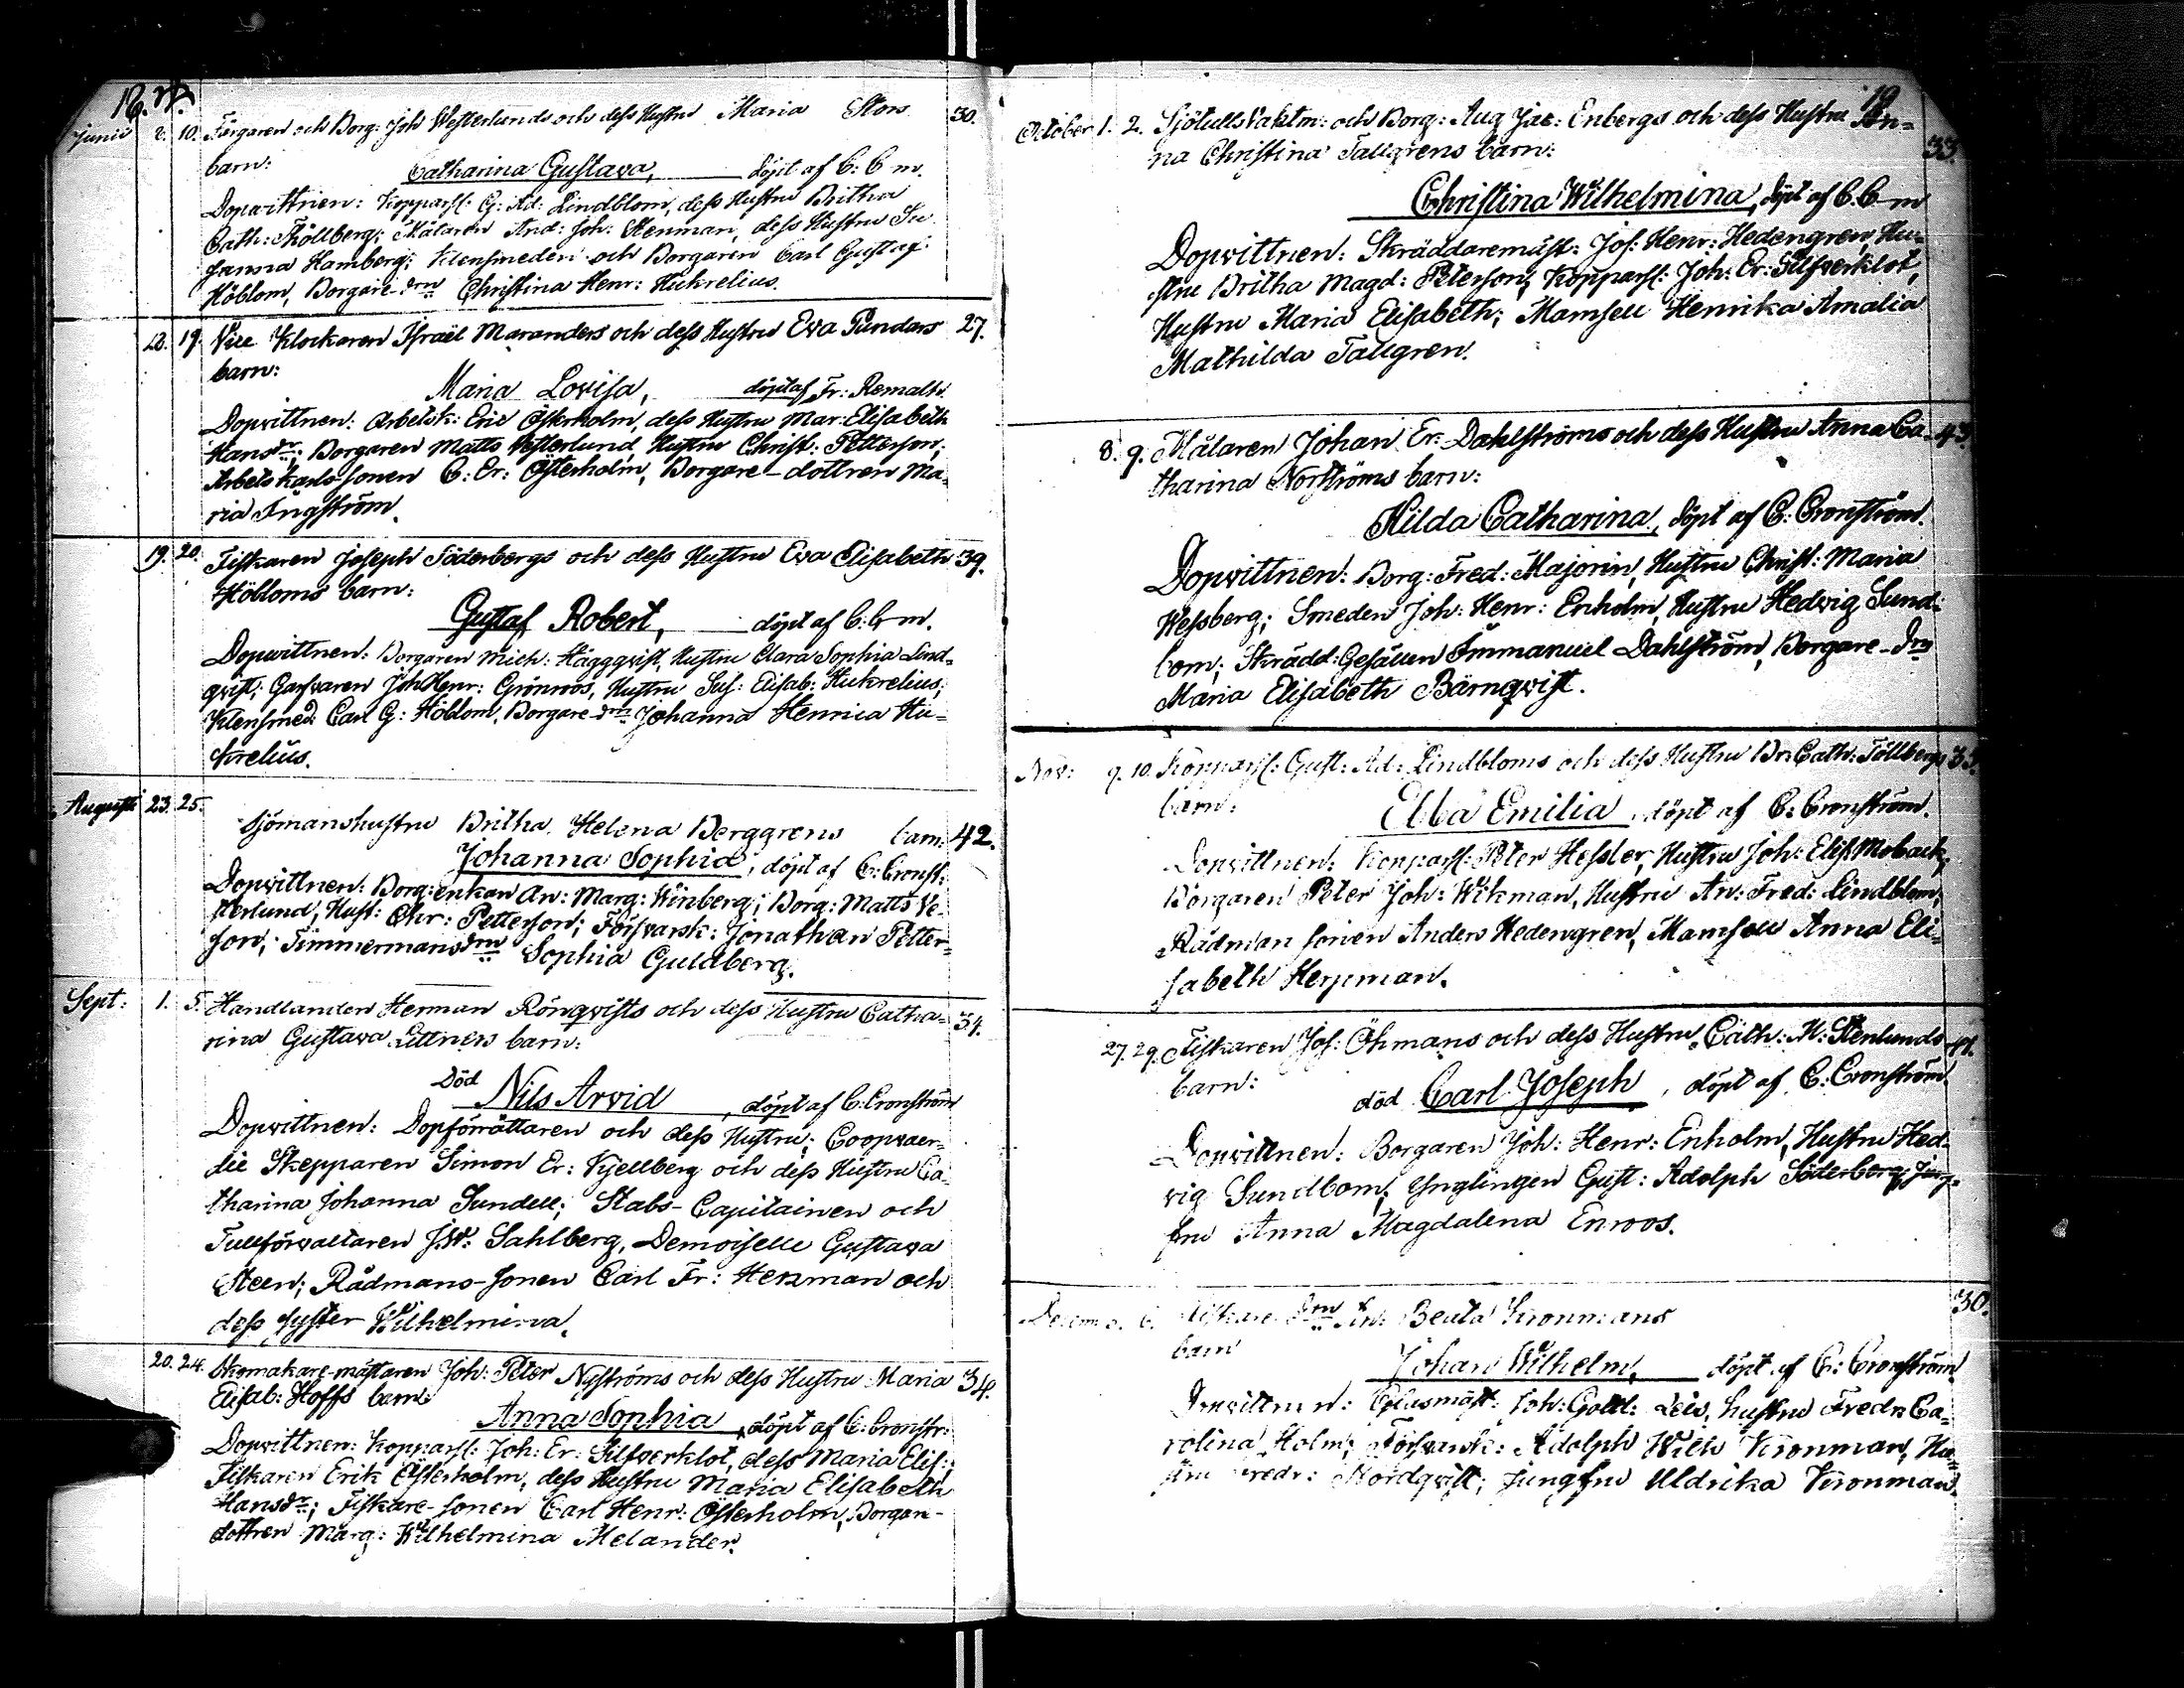 18.
Junii 2. 10. Färgaren och Borg: Joh Westerlunds och dess Hustru Maria Stors 30.
barn:
Catharina Gustava, döpt af C: C m.
Dopvittnen: Kopparsl: G: Ad: Lindblom, dess Hustru Britha
Cath: Föllberg; Målaren And: Joh: Stenman, dess Hustru Su
sanna Hamberg; Klensmeden och Borgaren Carl Gustaf
Höblom, Borgare-drn Christina Henr: Hukrelius.
12. 19. Vice Klockaren Israël Maranders och dess Hustru Eva Sunders 27.
barn:
Maria Lovisa, döpt af Fr: Remahl.
Dopvittnen: Arbetsk: Eric Österholm, dess Hustru Mar: Elisabeth
Hansdr; Borgaren Matts Vesterlund, Hustru Christ: Petterson;
Arbetskarls sonen C: Er: Österholm, Borgare-dottren Ma-
ria Ingström.
19. 20. Fiskaren Joseph Söderbergs och dess Hustru Eva Elisabeth 39.
Höbloms barn:
Gustaf Robert, döpt af C: C m.
Dopvittnen: Borgaren Mich: Häggqvist, Hustru Clara Sophia Lind-
qvist; Garfvaren Joh Henr: Grönroos, Hustru Sus: Elisab: Hukrelius;
Klensmed: Carl G: Höblom, Borgare-drn Johanna Henrica Hu-
krelius.
Augusti 23. 25.
Sjömanshustru Britha Helena Berggrens barn: 42.
Johanna Sophia, döpt af C: Cronst:
Dopvittnen: Borg: enkan An: Marg: Winberg; Borg: Matts Ve-
sterlund, Hust: Chr: Petterson; Försvarsk: Jonathan Petter-
son, Timmermansdrn Sophia Guldberg.
Sept: 1. 5. Handlanden Herman Rönqvists och dess Hustru Catha- 34.
rina Gustava Littners barn:
Död Nils Arvid, döpt af C: Cronström
Dopvittnen: Dopförrättaren och dess Hustru; Coopvaer-
die Skepparen Simon Er: Kjellberg och dess Hustru Ca-
tharina Johanna Sundell; Stabs-Capitainen och
Tullförvaltaren J.W: Sahlberg, Demoiselle Gustava
Steen; Rådmans-sonen Carl Fr: Herman och
dess syster Wilhelmina.
20. 24. Skomakare-mästaren Joh: Peter Nyströms och dess Hustru Maria 34.
Elisab: Hoffs barn:
Anna Sophia, döpt af C: Cronstr:
Dopvittnen: Kopparsl: Joh: Er: Silfverklot, dess Maria Elis:;
Fiskaren Erik Österholm, dess Hustru Maria Elisabeth
Hansdr; Fiskare-sonen Carl Henr: Österholm, Borgare-
dottren Marg: Wilhelmina Melander.
19
October 1. 2. Sjötulls Vaktm: och Borg: Aug Jac: Enbergs och dess Hustru An-
na Christina Tallgrens barn: 33.
Christina Wilhelmina, döpt af C. C m
Dopvittnen: Skräddaremäst: Jos: Henr: Hedengren, Hu-
stru Britha Magd: Peterson; Kopparsl: Joh: Er: Silfverklot,
Hustru Maria Elisabeth; Mamsell Henrika Amalia
Mathilda Tallgren.
8. 9. Målaren Johan Er: Dahlströms och dess Hustru Anna Ca- 43.
tharina Norströms barn:
Hilda Catharina, döpt af C: Cronström.
Dopvittnen: Borg: Fred: Majorin, Hustru Christ: Maria
Wessberg; Smeden Joh: Henr: Enholm, Hustru Hedvig Sund-
bom; Skrädd: Gesällen Immanuel Dahlström, Borgare-drn
Maria Elisabeth Bärnqvist.
Nov: 9. 10. Kopparsl: Gust: Ad: Lindbloms och dess Hustru Br: Cath: Föllbergs
barn:
Ebba Emilia, döpt af C: Cronström.
Dopvittnen: Kopparsl: Peter Hessler, Hustru Joh: Elis: Moback;
Borgaren Peter Joh: Wikman, Hustru An: Fred: Lindblom;
Rådman sonen Anders Hedengren, Mamsell Anna Eli-
sabeth Herpman.
27. 29. Fiskaren Jos: Öhmans och dess Hustru Cath: M: Stenlunds 41.
barn:
död Carl Joseph, döpt af C: Cronström.
Dopvittnen: Borgaren Joh: Henr: Enholm, Hustru Hed-
vig Sundbom; Ynglingen Gust: Adolph Söderberg, Jung-
fru Anna Magdalena Enroos.
Decem 6. Fiskare drn An: Beata Kronmans 30.
barn
Johan Wilhelm, döpt af C: Cronström
Dopvittnen: Glasmäst: Joh: Gottl: Leis, hustru Fredr: Ca-
rolina Holm; Försvarsk: Adolph Wilh Kronman, Hu-
stru Fredr: Nordqvist; Jungfru Uldrika Kronman.